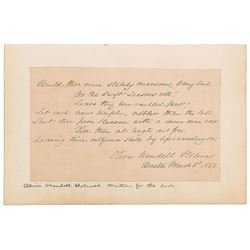 Build thee more stately mansions, O my Soul,
As the swift seasons roll!
Leave thy low-vaulted past!
Let each new temple, nobler than the last,
Shut thee from Heaven with a dome more vast
Till thou at length art free
Leaving thine outgrown shell by life's unresting sea!
Oliver Wendell Holmes
Boston March 8th
Oliver Wendell Holmes. Written for